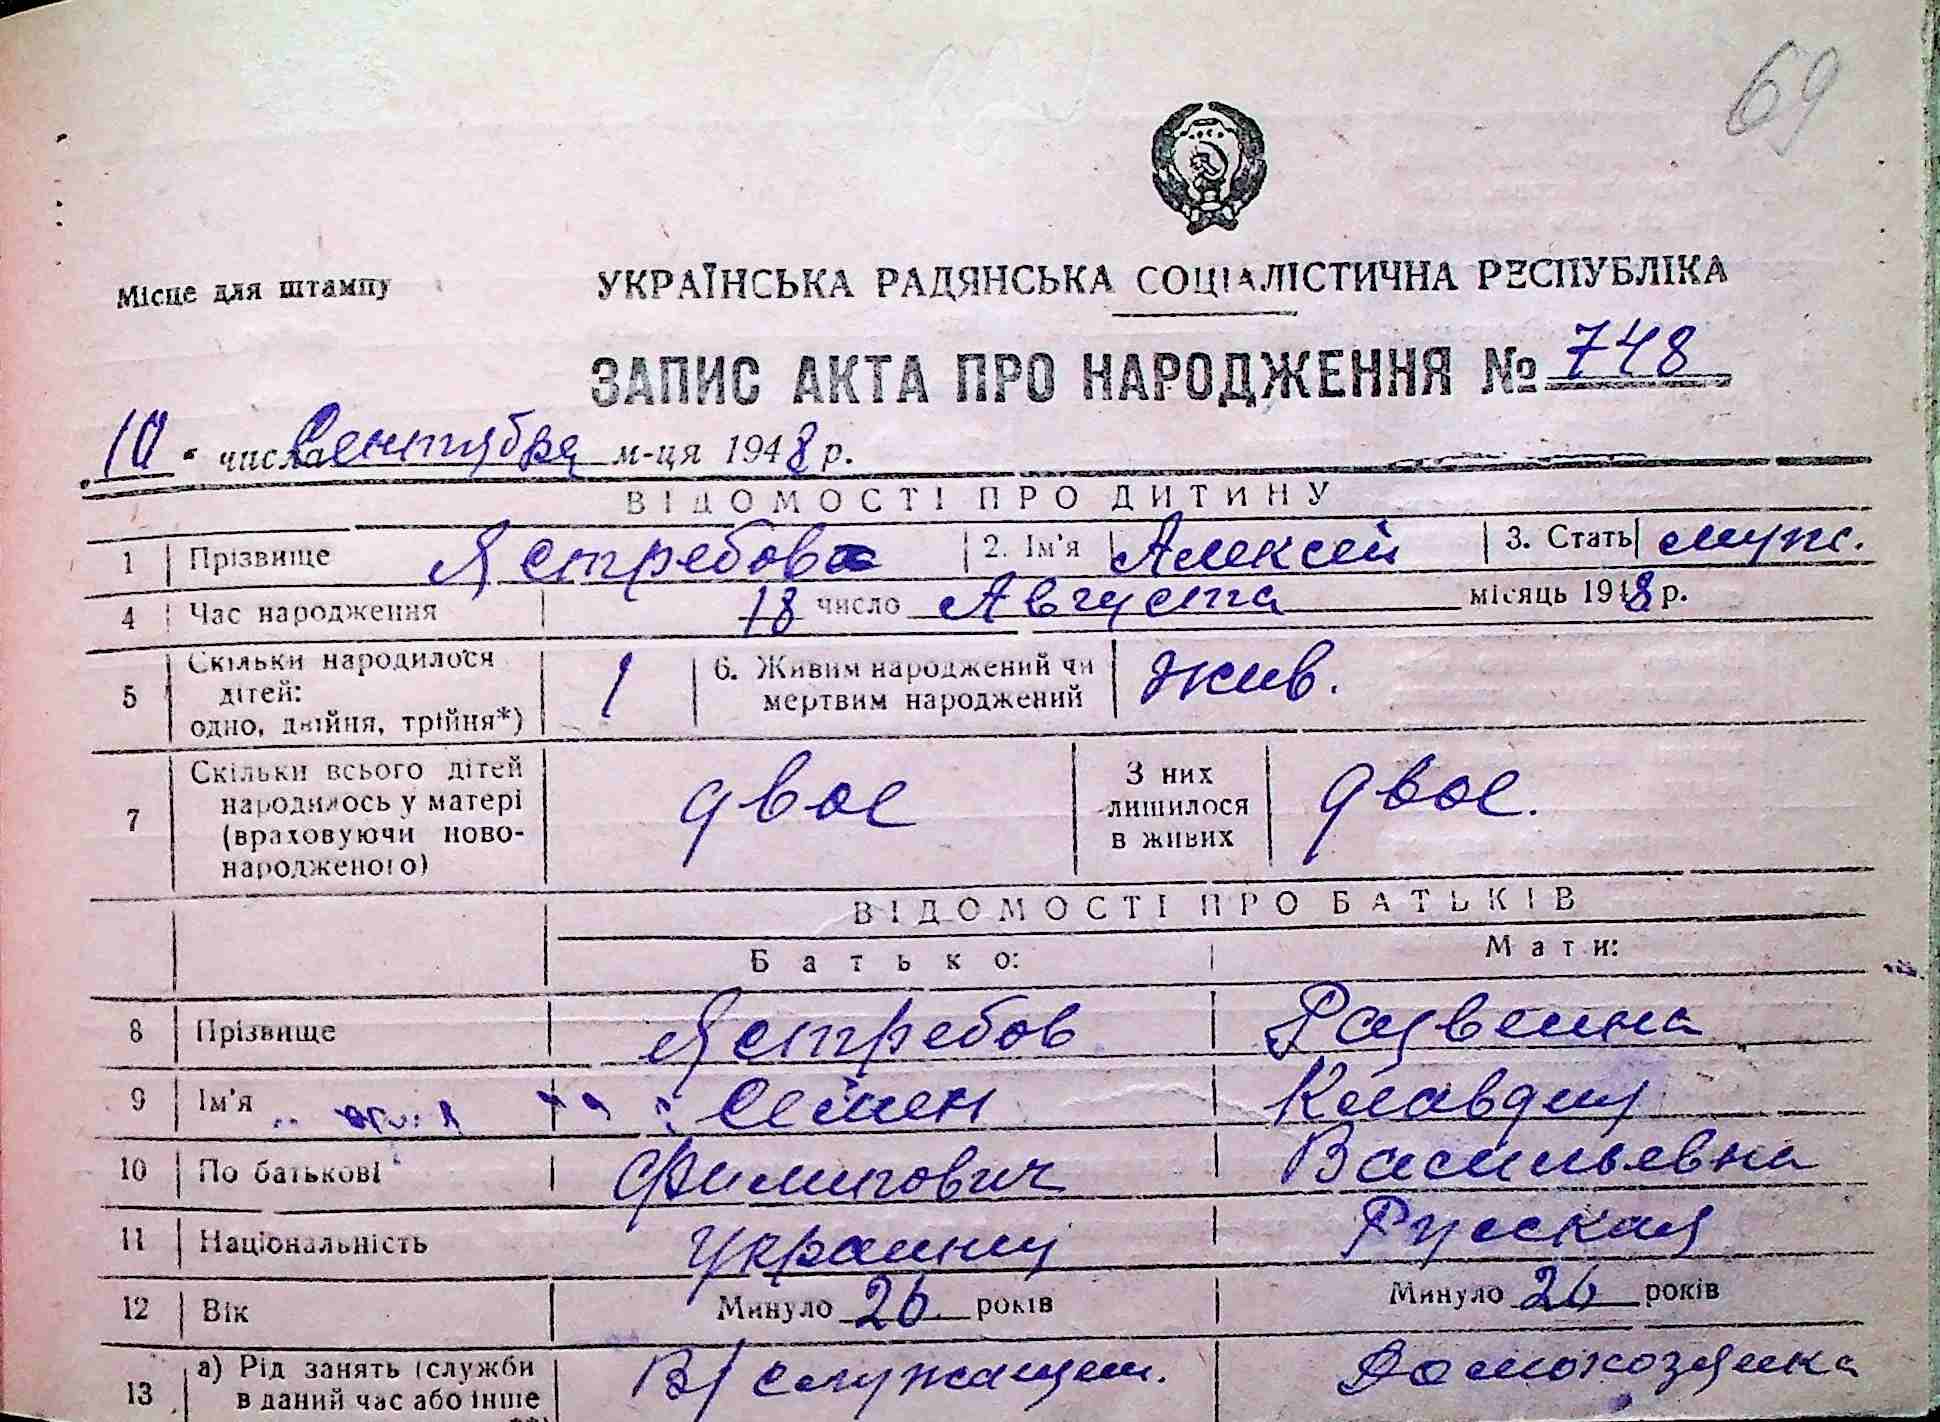 69
Місце для штампу
УКРАЇНСЬКА РАДЯНСЬКА СОЦІАЛІСТИЧНА РЕСПУБЛІКА
ЗАПИС АКТА ПРО НАРОДЖЕННЯ № 748
10 числа Сентября м-ця 1948 р.
ВІДОМОСТІ ПРО ДИТИНУ
1 Прізвище Ястребов 2. Ім'я Алексей 3. Стать муж.
4 Час народження 18 число Августа місяць 1948 р.
5 Скільки народилося дітей: одно, двійня, трійня*) 1 6. Живим народжений чи мертвим народжений жив.
7 Скільки всього дітей народилось у матері (враховуючи ново-народженого) двое З них лишилося в живих двое.
ВІДОМОСТІ ПРО БАТЬКІВ
Батько: Мати:
8 Прізвище Ястребов
9 Ім'я Семен Клавдия
10 По батькові Филипович Васильевна
11 Національність Украинец Русская
12 Вік Минуло 26 років Минуло 26 років
13 а) Рід занять (служби в даний час або інше В/служащий. Домохозяйка